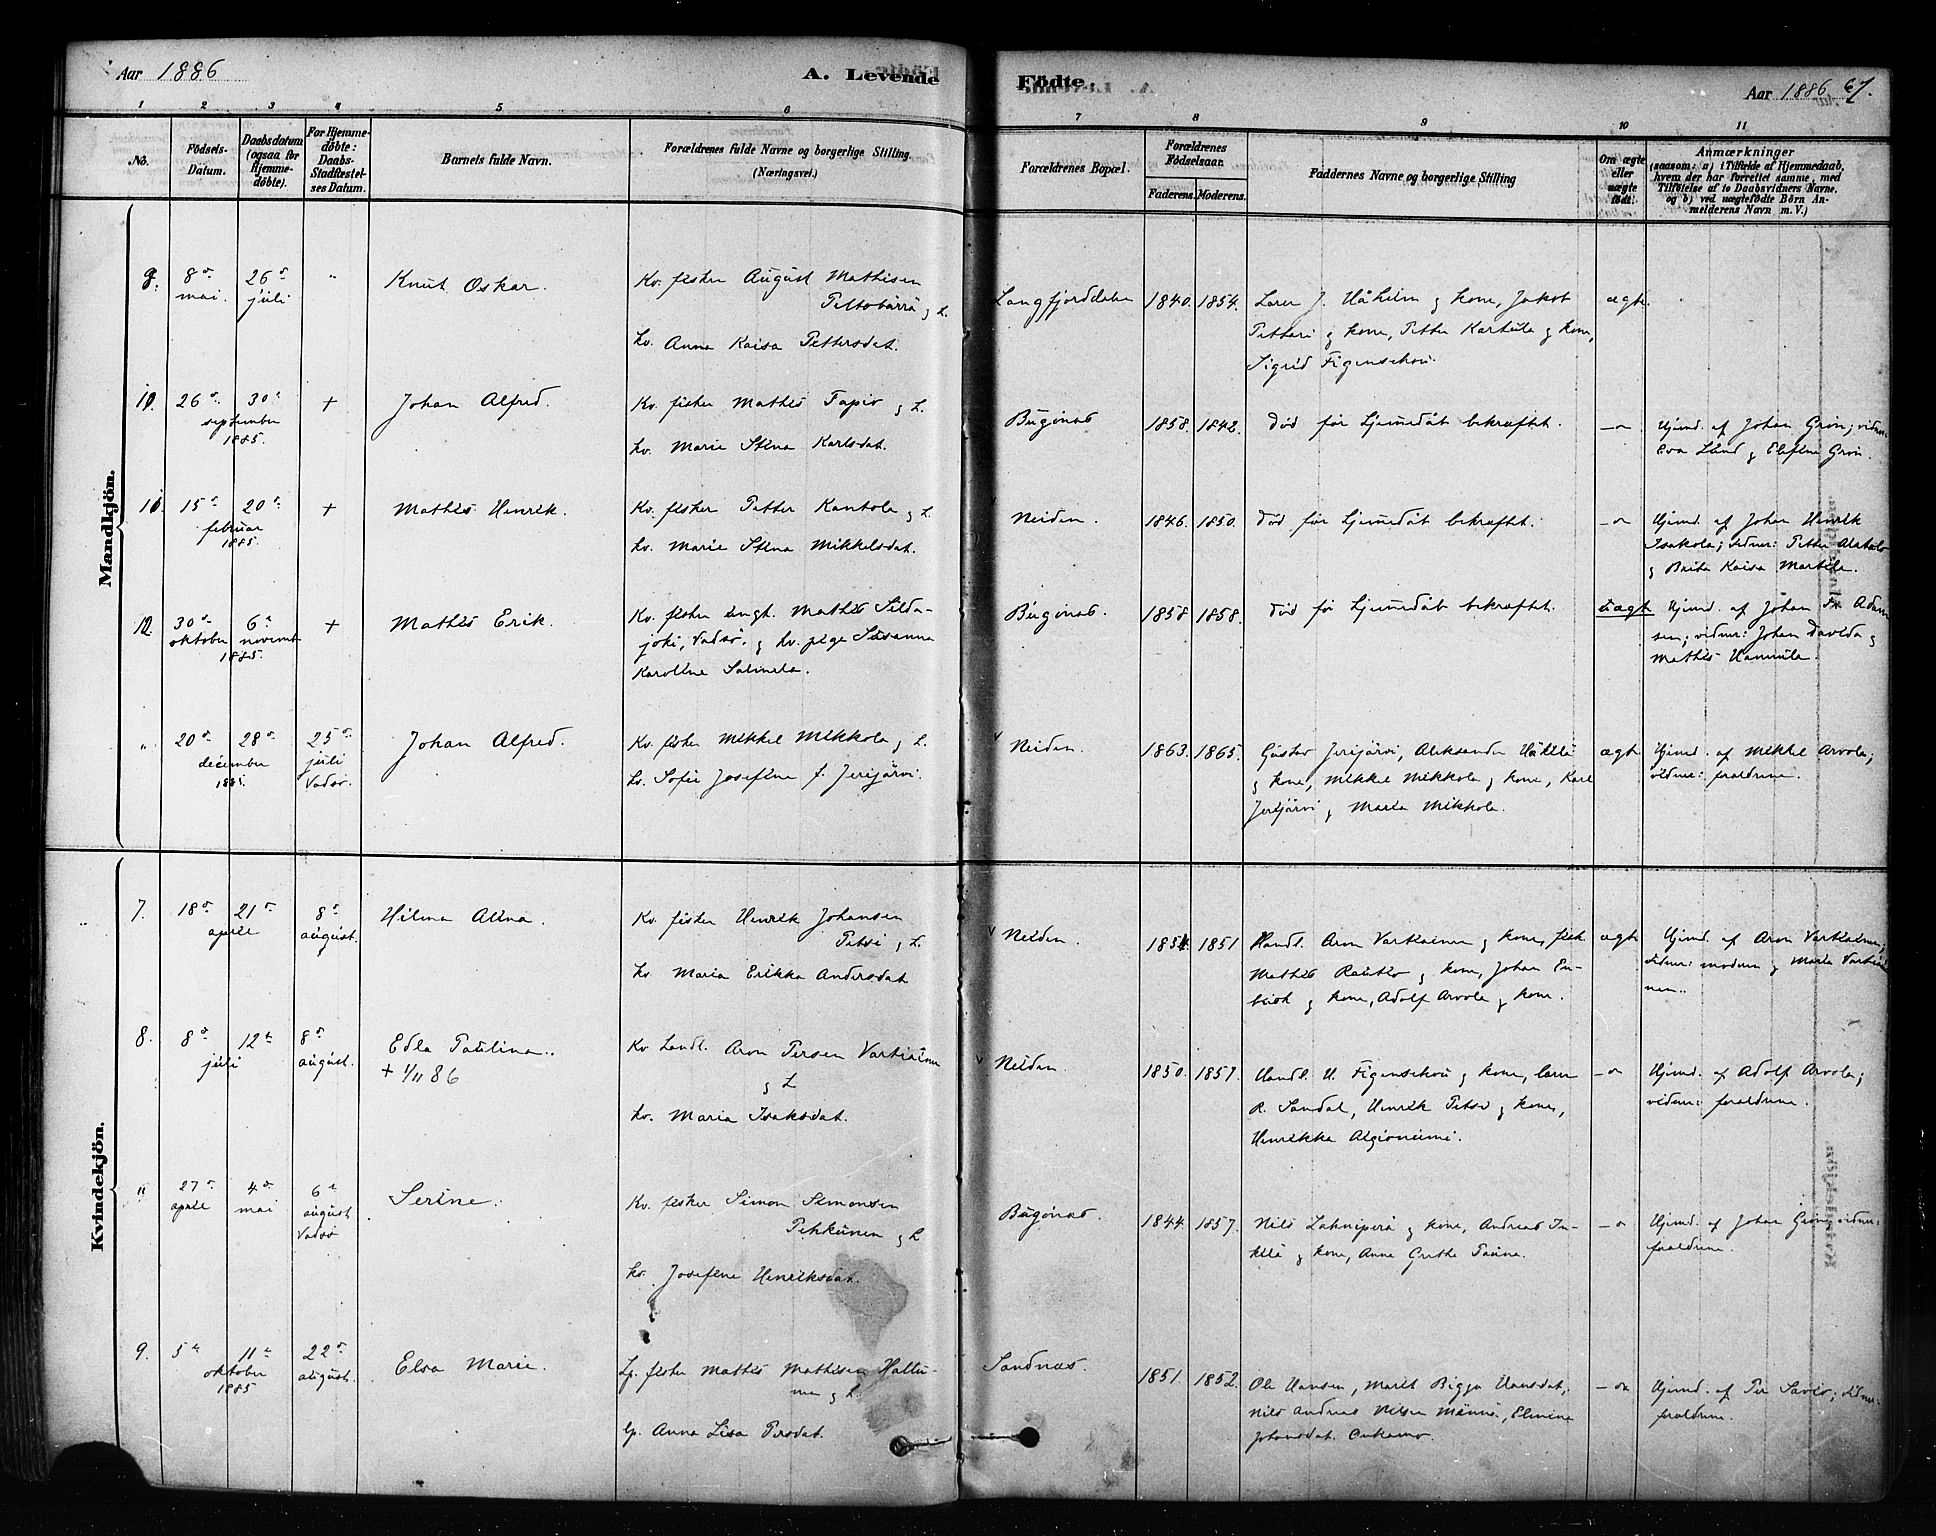 Aar 1886
A. Levende
Födte.
Aar 1886 67.
1 2 3 4 5 6 7 8 9 10 11
No.
Födsels-Datum.
Daabsdatum (ogsaa for Hjemme-döbte).
For Hjemme-döbte: Daabs-Stadfæstel-ses Datum.
Barnets fulde Navn.
Forældrenes fulde Navne og borgerlige Stilling.
(Næringsvei.)
Forældrenes Bopæl.
Forældrenes Födselsaar.
Faderens. Moderens.
Faddernes Navne og borgerlige Stilling
Om ægte eller uægte födt.
Anmærkninger
(saasom: a) i Tilfælde af Hjemmedaab,
hvem der har forrettet samme, med
Tilföielse af to Daabsvidners Navne.
og b) ved uægtefödte Börn An-
melderens Navn m. V.)
Mandkjön.
9. 8de mai. 26de juli "
Knut Oskar.
Kv. fisker August Mathisen
Peltobärrä og L.
kv. Anna Kaisa Pettersdat.
Langfjorddalen 1840. 1854.
Lærer J. Håheim og kone, Jakob
Pettari og kone, Petter Karkula og kone,
Sigrid Figenschou.
ægte
10. 26de 30te september 1885. +
Johan Alfred.
Kv. fisker Mathis Tapio og L.
kv. Marie Stina Karlsdat.
Bugönæs 1858. 1842.
død før hjemmedåb bekræftet.
—"
Hjemd. af Johan Grön; vidner:
Eva Lund og Eleftine Grön.
11. 15de 20de februar 1885. +
Mathis Henrik.
Kv. fisker Petter Kantola og L.
kv. Marie Stina Mikkelsdat.
Neiden. 1846. 1850.
død før hjemmedåb bekræftet.
—"
Hjemd. af Johan Henrik
Isakola; vidner: Petter Alatalo
og Brita Kaisa Martila.
12. 30te oktober 6te novembr. 1885. +
Mathis Erik.
Kv. fisker ungk. Mathis Silda-
joki, Vadsö, og kv. pige Susanna
Karoline Salmela.
Bugönæs. 1858. 1858.
død før hjemmedåb bekræftet.
uægte
Hjemd. af Johan Fr. Adam
sen; vidner: Johan Davida og
Mathis Hannula.
" 20de 28de december 1885. 25de juli Vadsö.
Johan Alfred.
Kv. fisker Mikkel Mikkola og L.
kv. Sofie Josefine f. Jerijärvi.
Neiden. 1863. 1865.
Gustav Jerijärvi, Aleksander Häkkli
og kone, Mikkel Mikkola og kone, Karl
Jerijärvi og Maria Mikkola.
ægte
Hjemd. af Mikkel Arvola;
vidner: forældrene.
Kvindekjön.
7. 18de 21de april 8de august.
Hilma Alina.
Kv. fisker Henrik Johansen
Petsi og L.
kv. Maria Erikka Andersdat.
Neiden. 1851. 1851
Handl. Aron Vartiainen og kone, fisk
Mathis Rautio og kone, Johan En-
björk og kone, Adolf Arvola og kone.
ægte
Hjemd. af Aron Vartiainen;
vidner: modren og Maria Vartiai-
nen.
8. 8de 12te juli 8de august.
Edla Paulina.
+ 1/11 86
Kv Landl. Aron Persen Vartiainen
og L
kv. Maria Isaksdat.
Neiden. 1850. 1857.
Handl. U. Figenschou og kone, lærer
R. Sandal, Henrik Petsi og kone,
Henrikka Algioniemi.
—"
Hjemd. af Adolf Arvola;
vidner: forældrene.
" 27de april 4de mai 6te august Vadsö
Serine.
Kv. fisker Simon Simonsen
Pekkunen og L
kv. Josefine Henriksdat.
Bugönæs. 1844. 1857.
Nils Lahniperä og kone, Andreas In-
kilä og kone, Anna Grethe Pauna.
—"
Hjemd. af Johan Grön, vidner:
forældrene.
9. 5te 11te oktober 1885 22de august.
Elsa Marie.
Lp. fisker Mathis Mathisen Hallu-
nen og L.
lp. Anna Lisa Persdat.
Sandnæs. 1851. 1852.
Ole Hansen, Marit Bigga Hansdat,
Nils Andreas Nilsen Männö, Elmine
Johansdat. Onkamo.
—"
Hjemd. af Per Savio; vidner:
forældrene.